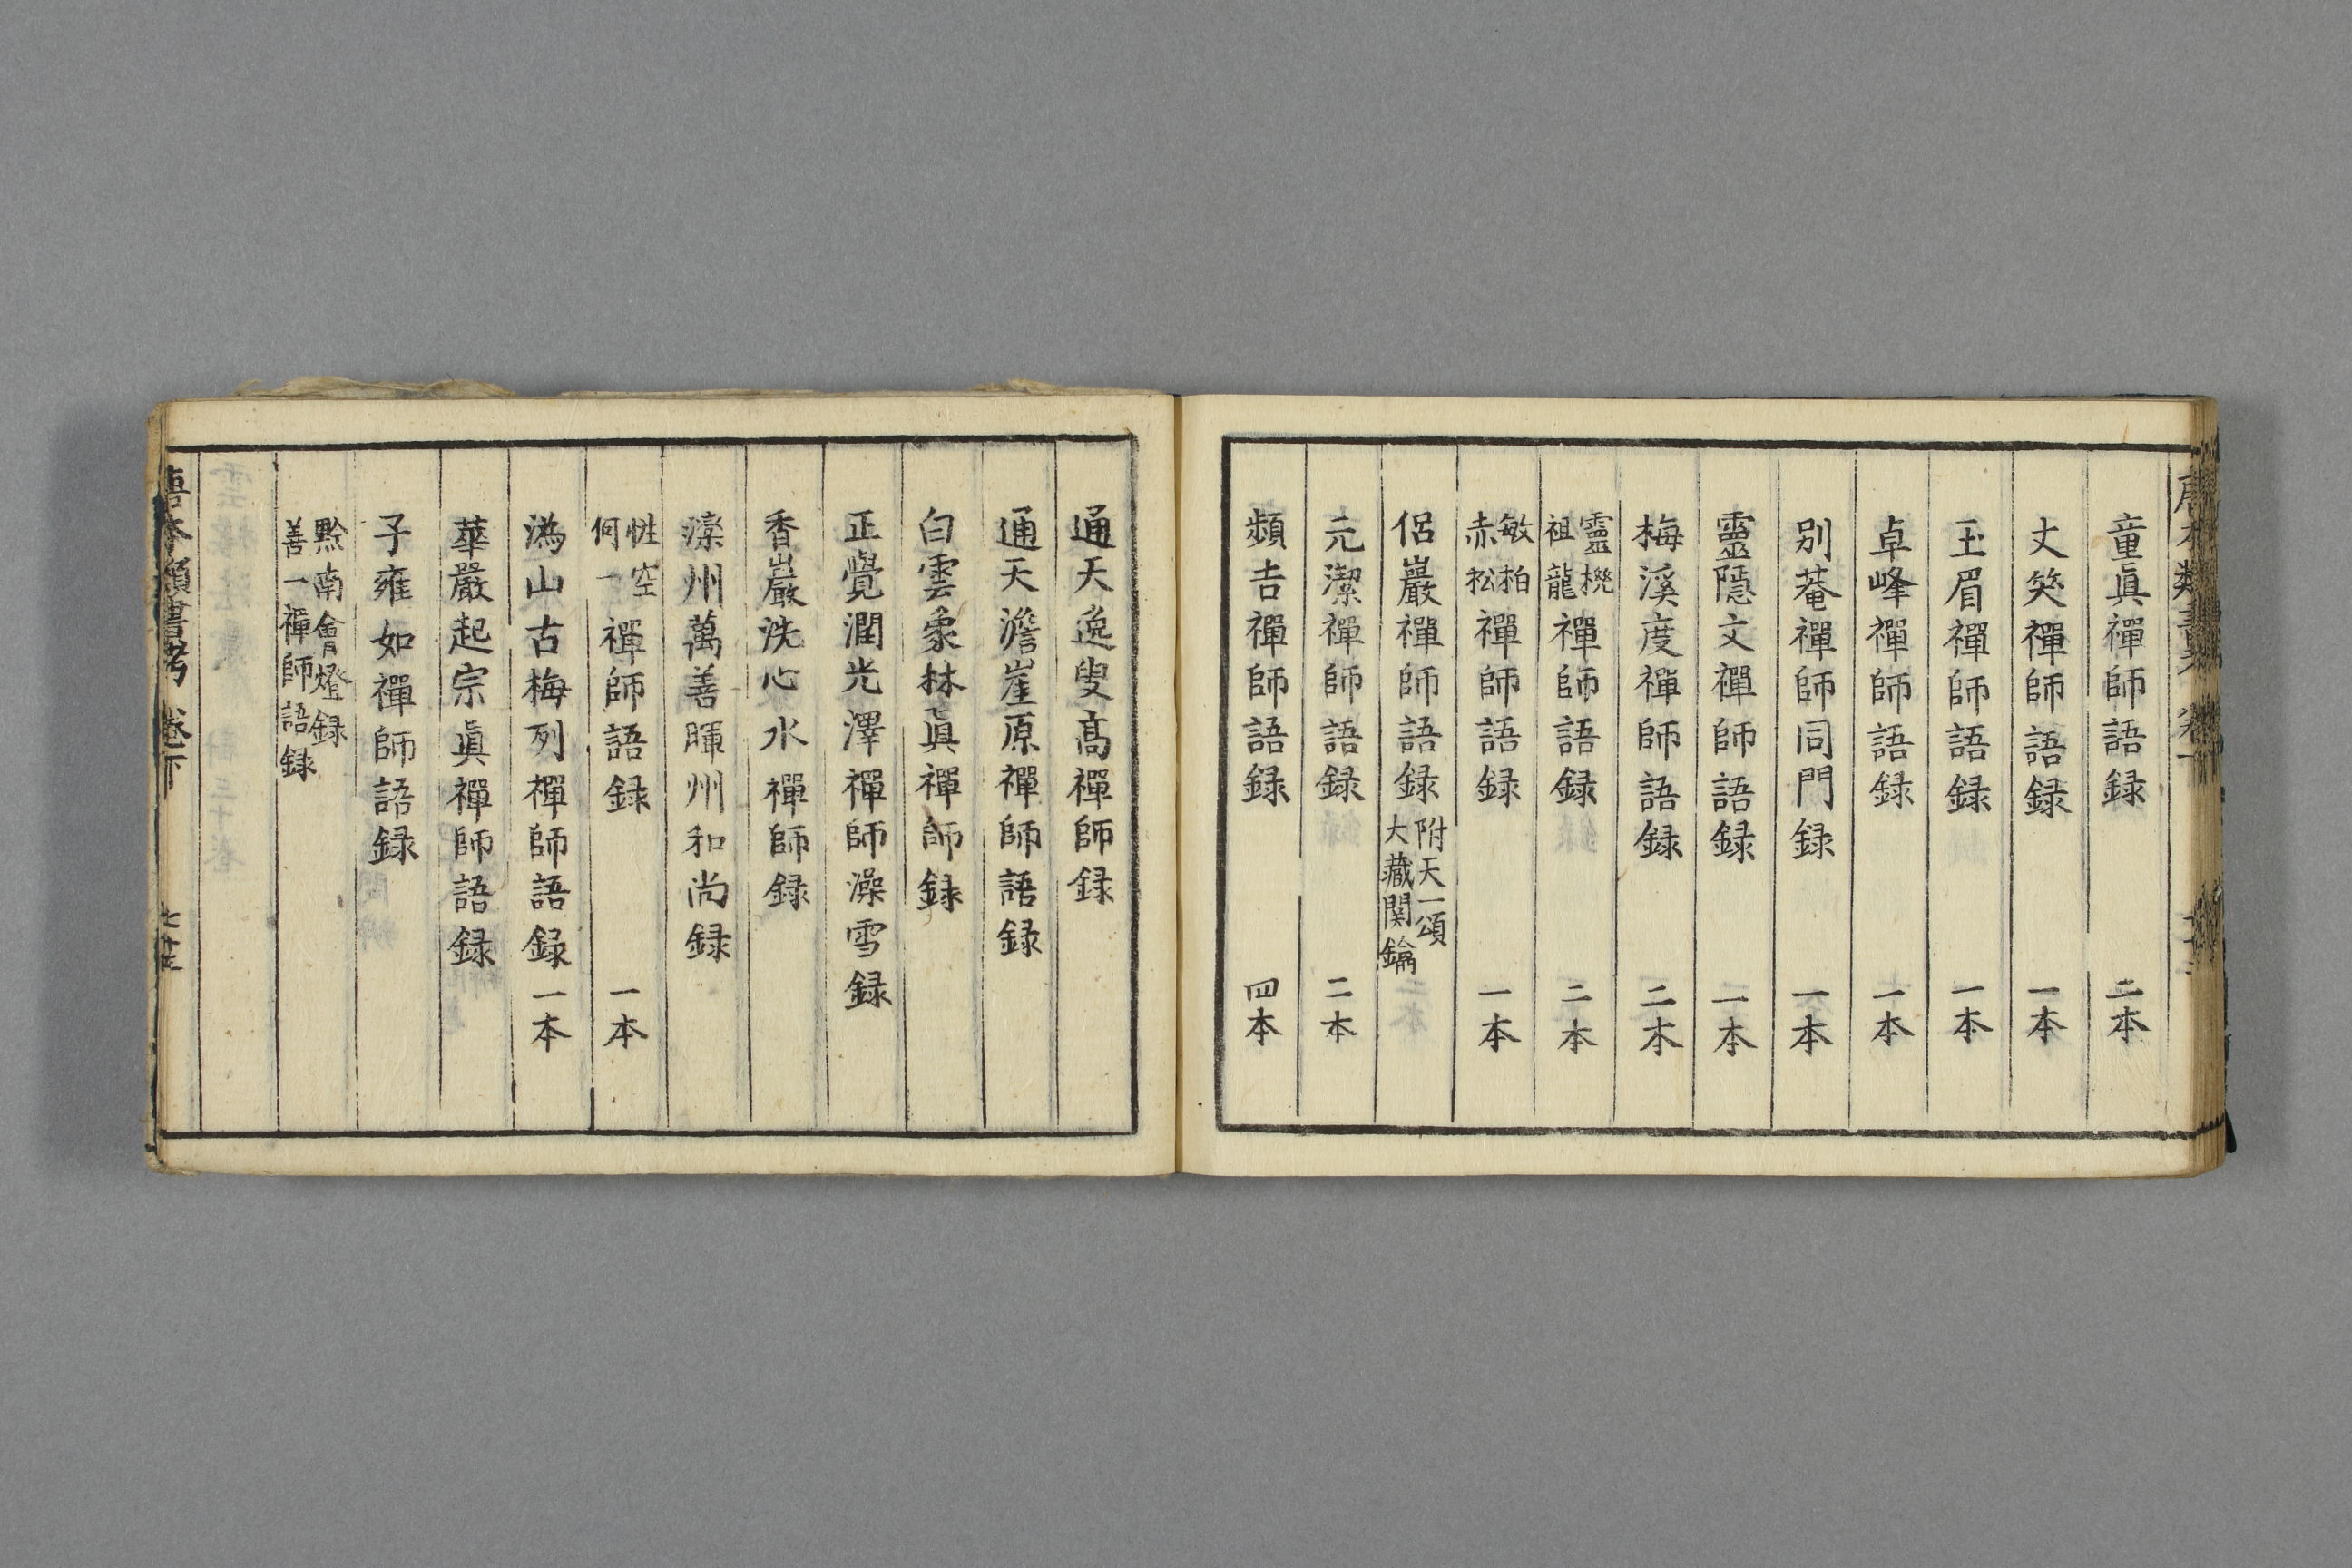 童眞禪師語録 二本
丈笑禪師語録 一本
玉眉禪師語録 一本
卓峰禪師語録 一本
别菴禪師同門録 一本
靈隱文禪師語録 一本
梅溪度禪師語録 二本
靈機
祖龍 禪師語録 二本
敏柏
赤松 禪師語録 一本
侶巖禪師語録 附天一頌
大藏関鑰
元潔禪師語録 二本
頻吉禪師語録 四本
通天逸叟高禪師録
通天澹崖原禪師語録
白雲象林眞禪師録
正覺潤光澤禪師澡雪録
香巖洗心水禪師録
灤州萬善暉州和尚録
性空
何一 禪師語録 一本
溈山古梅列禪師語録 一本
華嚴起宗眞禪師語録
子雍如禪師語録
黔南會燈録
善一禪師語録
唐本類書考 卷下